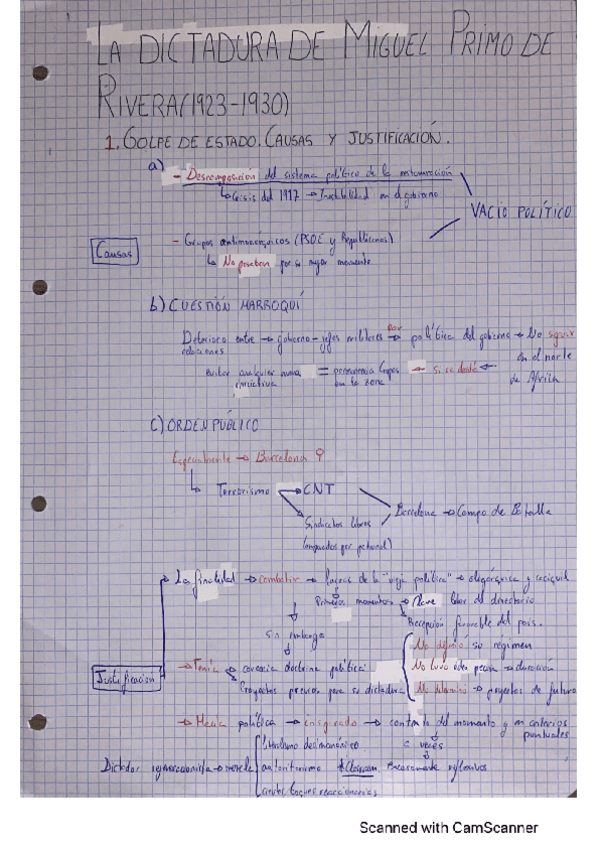 LA DICTADURA DE MIGUEL PRIMO DE
RIVERA (1923-1930)
1. GOLPE DE ESTADO. CAUSAS Y JUSTIFICACIÓN.
a)
- Descomposición del sistema político de la restauración
↳ Crisis del 1917 → Inestabilidad en el gobierno
VACÍO POLÍTICO
Causas
- Grupos antimonárquicos (PSOE y Republicanos)
↳ No pasaban por su mejor momento
b) CUESTIÓN MARROQUÍ
Deterioro entre → gobierno - jefes militares → por política del gobierno → No seguir
relaciones
en el norte
de África
evitar cualquier nueva = permanencia tropas ← si se debe ←
en la zona
c) ORDEN PÚBLICO
Especialmente → Barcelona
↳ Terrorismo → CNT
Sindicatos libres
Barcelona → Campo de Batalla
(amparados por patronal)
La finalidad → combatir → lacras de la "vieja política" → oligárquica y caciquil
Primeros momentos → Breve labor del directorio
Recepción favorable del país.
Sin embargo
No definió su régimen
Justificación
- Tenía → carencia doctrina política
No tuvo idea → duración
Proyectos precisos para su dictadura
No → proyectos de futuro
política → → contraria del momento y en criterios
puntuales
a veces
liberalismo decimonónico
Dictador regeneracionista → mezcla
autoritarismo
escasamente reflexivos
toques reaccionarios
Scanned with CamScanner